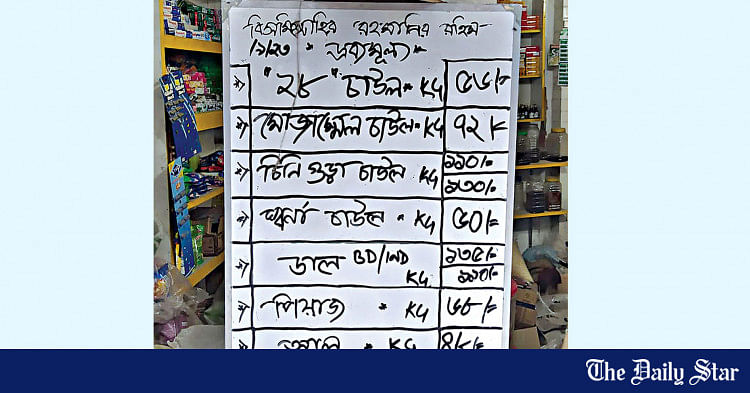 বিসমিল্লাহির রহমানির রহিম
দ্রব্যমূল্য
"২৮" চাউল KG ৫৬/=
মোজাম্মেল চাউল KG ৭২/=
চিনি গুড়া চাউল KG ১১০/= ১৩০/=
স্বর্না চাউল KG ৫০/=
ডাল BD/IND KG ১৩৫/= ১১০/=
পিয়াজ KG ৬৮/=
KG
The Daily Star